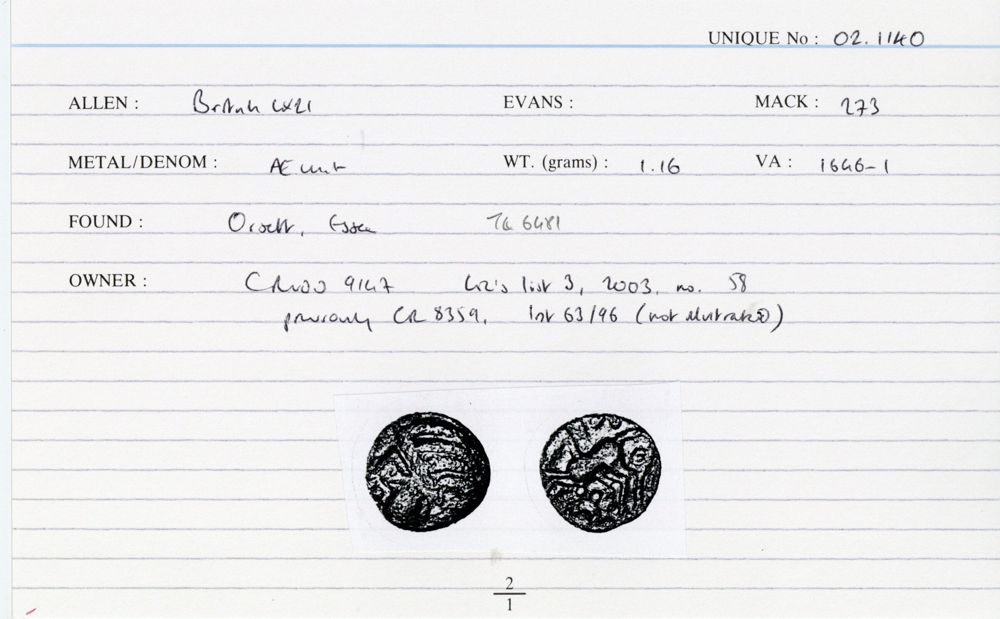 UNIQUE No : 02.1140
ALLEN : British LX21 EVANS : MACK : 273
METAL/DENOM : Æ unit WT. (grams) : 1.16 VA : 1646-1
FOUND : Orsett, Essex TQ 6481
OWNER : 9147 list 3, 2003, no. 58
previously CR 8359, list 63/96 (not illustrated)
2
1